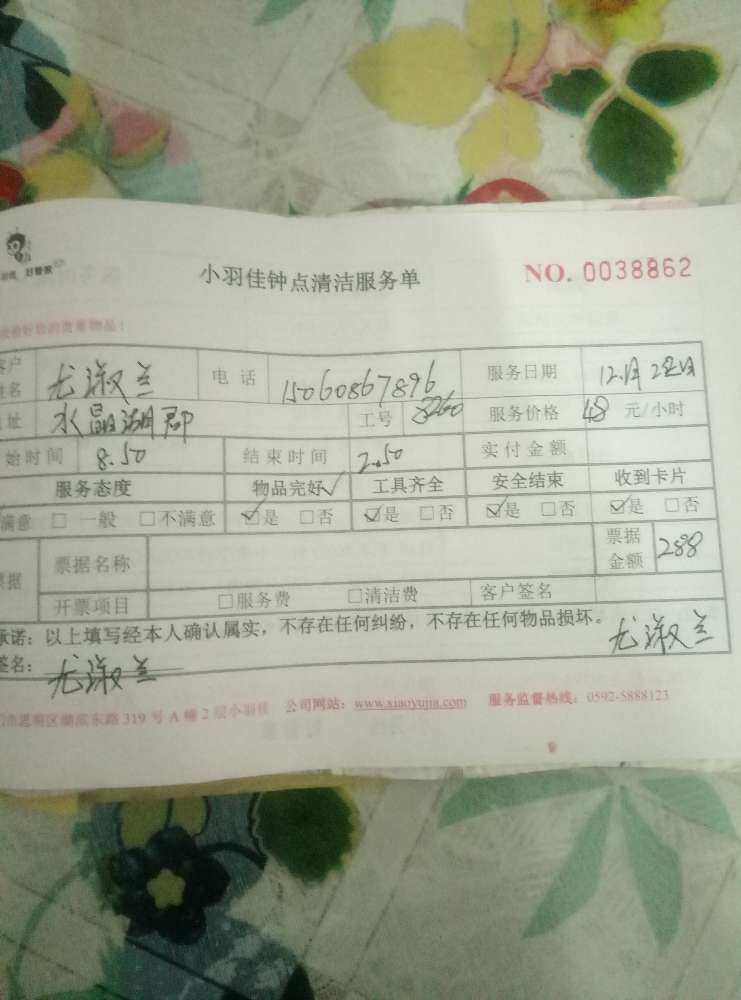 好管家
小羽佳钟点清洁服务单
NO. 0038862
好您的贵重物品！
客户姓名 尤淑兰 电话 15060867896 服务日期 12月28日
址 水晶湖郡 工号 8260 服务价格 48 元/小时
始时间 8.50 结束时间 2.50 实付金额
服务态度 物品完好 工具齐全 安全结束 收到卡片
满意 □ 一般 □不满意 ☑是 □否 ☑是 □否 ☑是 □否 ☑是 □否
票据 票据名称 票据金额 288
开票项目 □服务费 □清洁费 客户签名
承诺：以上填写经本人确认属实，不存在任何纠纷，不存在任何物品损坏。
签名：尤淑兰 尤淑兰
市思明区湖滨东路 319 号 A 幢 2 层小羽佳 公司网站：www.xiaoyujia.com 服务监督热线：0592-5888123